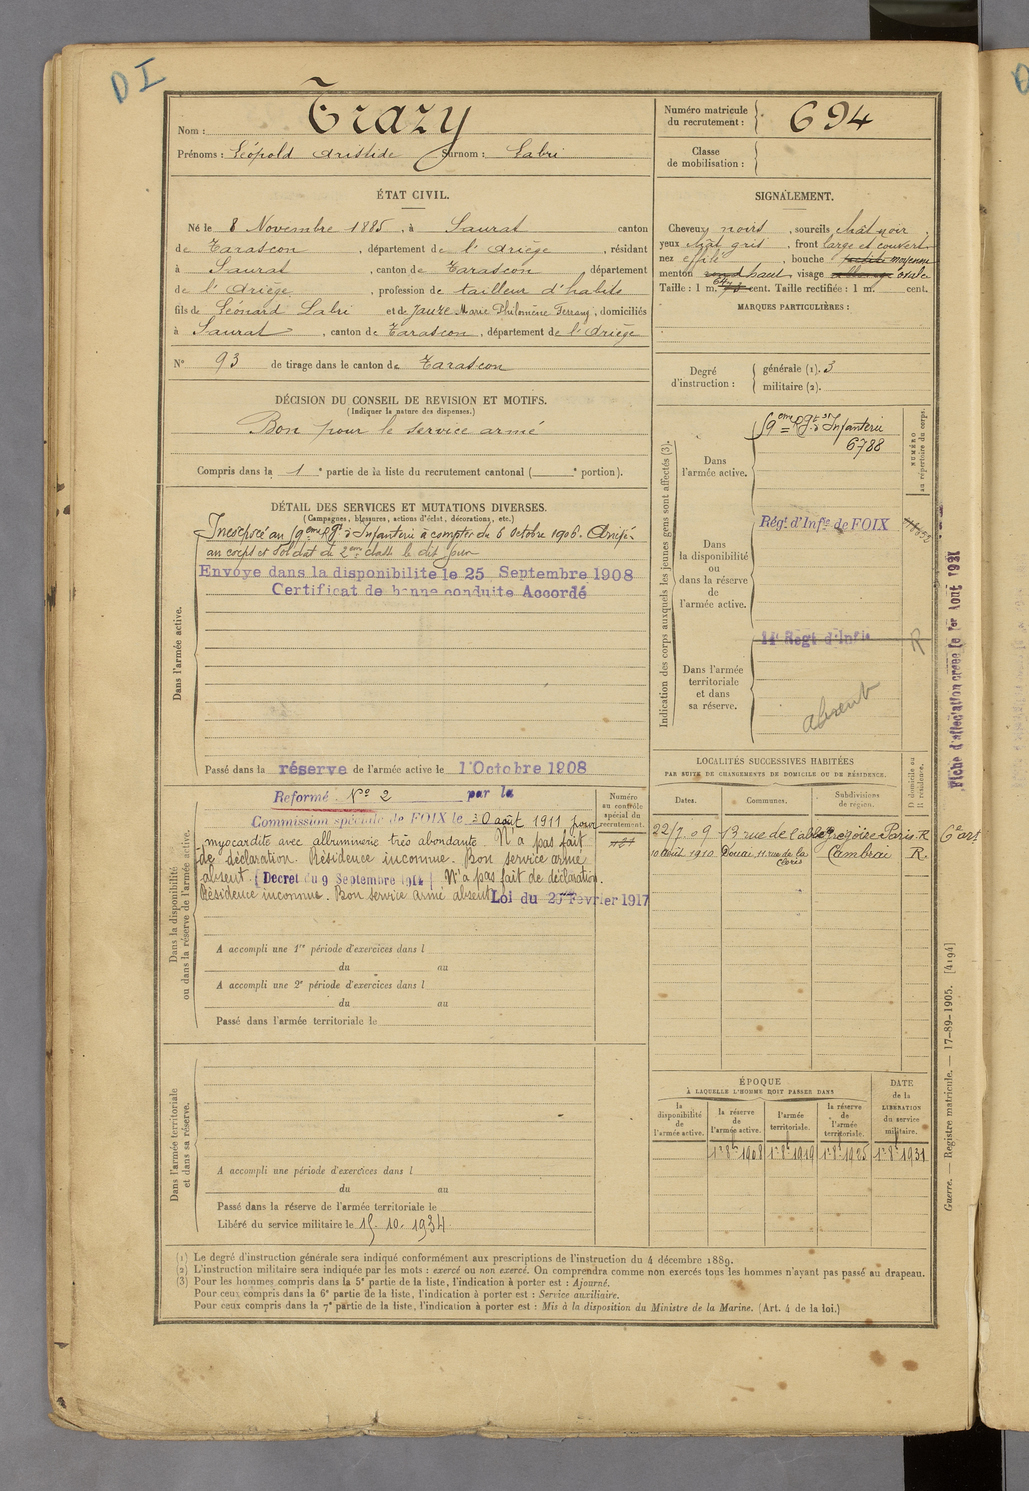 D I
Nom : Trazy
Prénoms : Léopold Aristide Surnom : Labri
Numéro matricule
du recrutement : 694
Classe
de mobilisation :
ÉTAT CIVIL.
Né le 8 Novembre 1885, à Saurat canton
de Tarascon, département de l'Ariège, résidant
à Saurat, canton de Tarascon département
de l'Ariège, profession de tailleur d'habits
fils de Léonard Labri et de Jauze Marie Philomène, domiciliés
à Saurat, canton de Tarascon, département de l'Ariège
N° 93 de tirage dans le canton de Tarascon
SIGNALEMENT.
Cheveux noirs, sourcils chât noir
yeux chât gris, front large et couvert
nez effilé, bouche moyenne
menton haut, visage ovale
Taille : 1 m. cent. Taille rectifiée : 1 m. cent.
MARQUES PARTICULIÈRES :
Degré
d'instruction :
générale (1). 3
militaire (2).
DÉCISION DU CONSEIL DE REVISION ET MOTIFS.
(Indiquer la nature des dispenses.)
Bon pour le service armé
Compris dans la 1e partie de la liste du recrutement cantonal ( e portion).
DÉTAIL DES SERVICES ET MUTATIONS DIVERSES.
(Campagnes, blessures, actions d'éclat, décorations, etc.)
Dans l'armée active.
Incorporé au 59eme Rgt d'Infanterie à compter du 6 Octobre 1906. Arrivé
au corps et soldat de 2eme classe le dit jour
Envoyé dans la disponibilité le 25 Septembre 1908
Certificat de bonne conduite Accordé
Passé dans la réserve de l'armée active le 1 Octobre 1908
Indication des corps auxquels les jeunes gens sont affectés (3).
NUMÉRO
au répertoire du corps.
Dans
l'armée active.
59eme Rgt d'Infanterie
6788
Dans
la disponibilité
ou
dans la réserve
de
l'armée active.
Régt d'Infie de FOIX
Dans l'armée
territoriale
et dans
sa réserve.
14e Régt d'Infie
R
absent
Fiche d'affectation créée le 1er Août 1931
Dans la disponibilité
ou dans la réserve de l'armée active.
Numéro
au contrôle
spécial du
recrutement.
Réformé N° 2 par la
Commission spéciale de FOIX le 30 août 1911 pour
myocardite avec albuminerie très abondante. N'a pas fait
de déclaration. Résidence inconnue. Bon service armé
absent. (Decret du 9 Septembre 1914) N'a pas fait de déclaration.
Résidence inconnue. Bon service armé absent Loi du 20 Février 1917
A accompli une 1re période d'exercices dans l
du au
A accompli une 2e période d'exercices dans l
du au
Passé dans l'armée territoriale le
LOCALITÉS SUCCESSIVES HABITÉES
PAR SUITE DE CHANGEMENTS DE DOMICILE OU DE RÉSIDENCE.
Dates. Communes. Subdivisions
de région. D domicile ou
R résidence.
22/7 09 13 rue de l'abbé grégoire Paris R
10 avril 1910 Douai, 11 rue de la Cambrai R.
Dans l'armée territoriale
et dans sa réserve.
A accompli une période d'exercices dans l
du au
Passé dans la réserve de l'armée territoriale le
Libéré du service militaire le 15. 10. 1934
ÉPOQUE
À LAQUELLE L'HOMME DOIT PASSER DANS
la
disponibilité
de
l'armée active.
la réserve
de
l'armée active.
l'armée
territoriale.
la réserve
de
l'armée
territoriale.
DATE
de la
LIBÉRATION
du service
militaire.
1er 8bre 1908 1er 8bre 1919 1er 8bre 1925 1er 8bre 1931
(1) Le degré d'instruction générale sera indiqué conformément aux prescriptions de l'instruction du 4 décembre 1889.
(2) L'instruction militaire sera indiquée par les mots : exercé ou non exercé. On comprendra comme non exercés tous les hommes n'ayant pas passé au drapeau.
(3) Pour les hommes compris dans la 5e partie de la liste, l'indication à porter est : Ajourné.
Pour ceux compris dans la 6e partie de la liste, l'indication à porter est : Service auxiliaire.
Pour ceux compris dans la 7e partie de la liste, l'indication à porter est : Mis à la disposition du Ministre de la Marine. (Art. 4 de la loi.)
Guerre. — Registre matricule. — 17-89-1905. [4194]